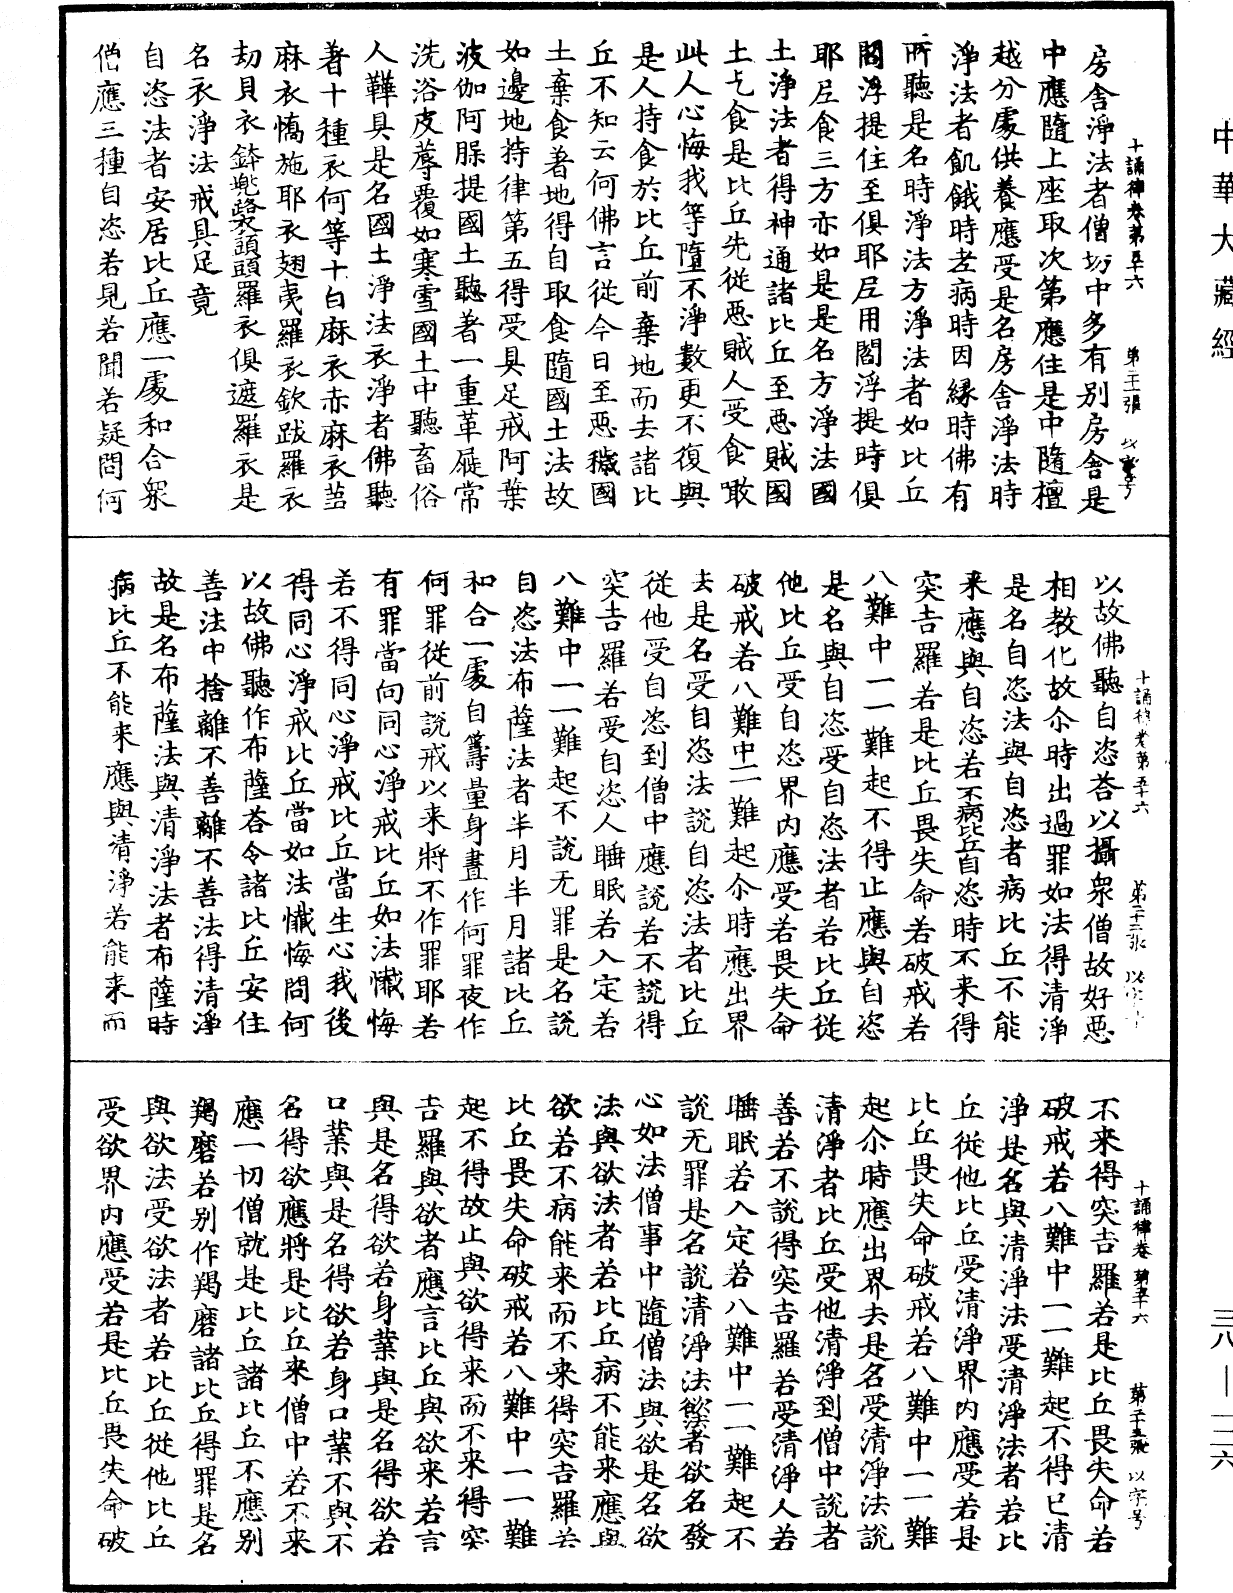 中華大藏經
十誦律卷第五十六　第二十二張　以字号
房舍淨法者僧坊中多有別房舍是
中應隨上座取次第應住是中隨檀
越分處供養應受是名房舍淨法時
淨法者飢餓時老病時因緣時佛有
所聽是名時淨法方淨法者如比丘
閻浮提住至俱耶尼用閻浮提時俱
耶尼食三方亦如是是名方淨法國
土淨法者得神通諸比丘至惡賊國
土乞食是比丘先從惡賊人受食噉
此人心悔我等墮不淨數更不復與
是人持食於比丘前棄地而去諸比
丘不知云何佛言從今日至惡穢國
土棄食著地得自取食隨國土法故
如邊地持律第五得受具足戒阿葉
波伽阿䐗提國土聽著一重革屣常
洗浴皮蓐覆如寒雪國土中聽畜俗
人鞾具是名國土淨法衣淨者佛聽
著十種衣何等十白麻衣赤麻衣芻
麻衣憍施耶衣翅夷羅衣欽跋羅衣
劫貝衣鉢兜路衣頭頭羅衣俱遮羅衣是
名衣淨法戒具足竟
自恣法者安居比丘應一處和合眾
僧應三種自恣若見若聞若疑問何
十誦律卷第五十六　第二十三張　以字号
以故佛聽自恣荅以攝眾僧故好惡
相教化故尒時出過罪如法得清淨
是名自恣法與自恣者病比丘不能
来應與自恣若不病比丘自恣時不来得
突吉羅若是比丘畏失命若破戒若
八難中一一難起不得止應與自恣
是名與自恣受自恣法者若比丘從
他比丘受自恣界內應受若畏失命
破戒若八難中一一難起尒時應出界
去是名受自恣法說自恣法者比丘
從他受自恣到僧中應說若不說得
突吉羅若受自恣人睡眠若入定若
八難中一一難起不說无罪是名說
自恣法布薩法者半月半月諸比丘
和合一處自籌量身晝作何罪夜作
何罪從前說戒以来將不作罪耶若
有罪當向同心淨戒比丘如法懺悔
若不得同心淨戒比丘當生心我後
得同心淨戒比丘當如法懺悔問何
以故佛聽作布薩荅令諸比丘安住
善法中捨離不善離不善法得清淨
故是名布薩法與清淨法者布薩時
病比丘不能来應與清淨若能来而
十誦律卷第五十六　第二十四張　以字号
不来得突吉羅若是比丘畏失命若
破戒若八難中一一難起不得已清
淨是名與清淨法受清淨法者若比
丘從他比丘受清淨界內應受若是
比丘畏失命破戒若八難中一一難
起尒時應出界去是名受清淨法說
清淨者比丘受他清淨到僧中說者
善若不說得突吉羅若受清淨人若
睡眠若入定若八難中一一難起不
說无罪是名說清淨法欲法者欲名發
心如法僧事中隨僧法與欲是名欲
法與欲法者若比丘病不能来應與
欲若不病能来而不来得突吉羅若
比丘畏失命破戒若八難中一一難
起不得故止與欲得来而不来得突
吉羅與欲者應言比丘與欲来若言
與是名得欲若身業與是名得欲若
口業與是名得欲若身口業不與不
名得欲應將是比丘来僧中若不来
應一切僧就是比丘諸比丘不應別
羯磨若別作羯磨諸比丘得罪是名
與欲法受欲法者若比丘從他比丘
受欲界內應受若是比丘畏失命破
三八—一二六